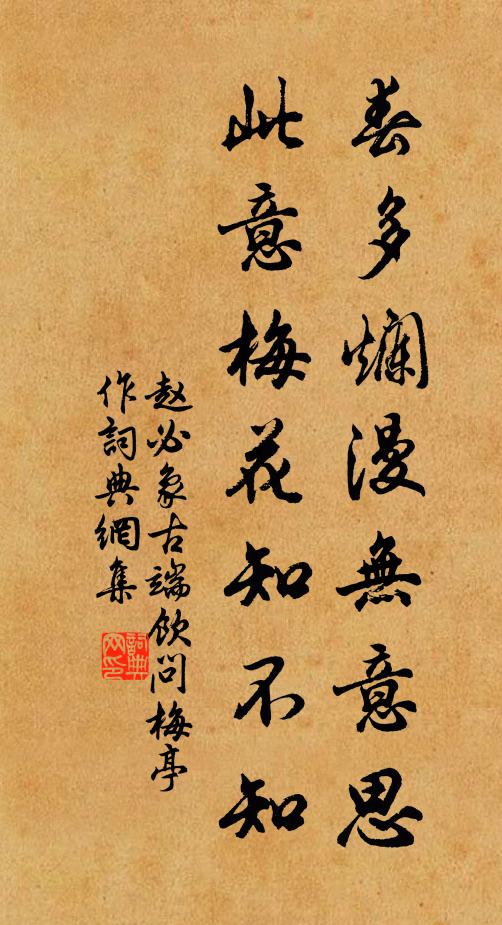 春多爛漫無意思
此意梅花知不知
赵必象古端飲问梅亭
作詞典網集
詞典网印